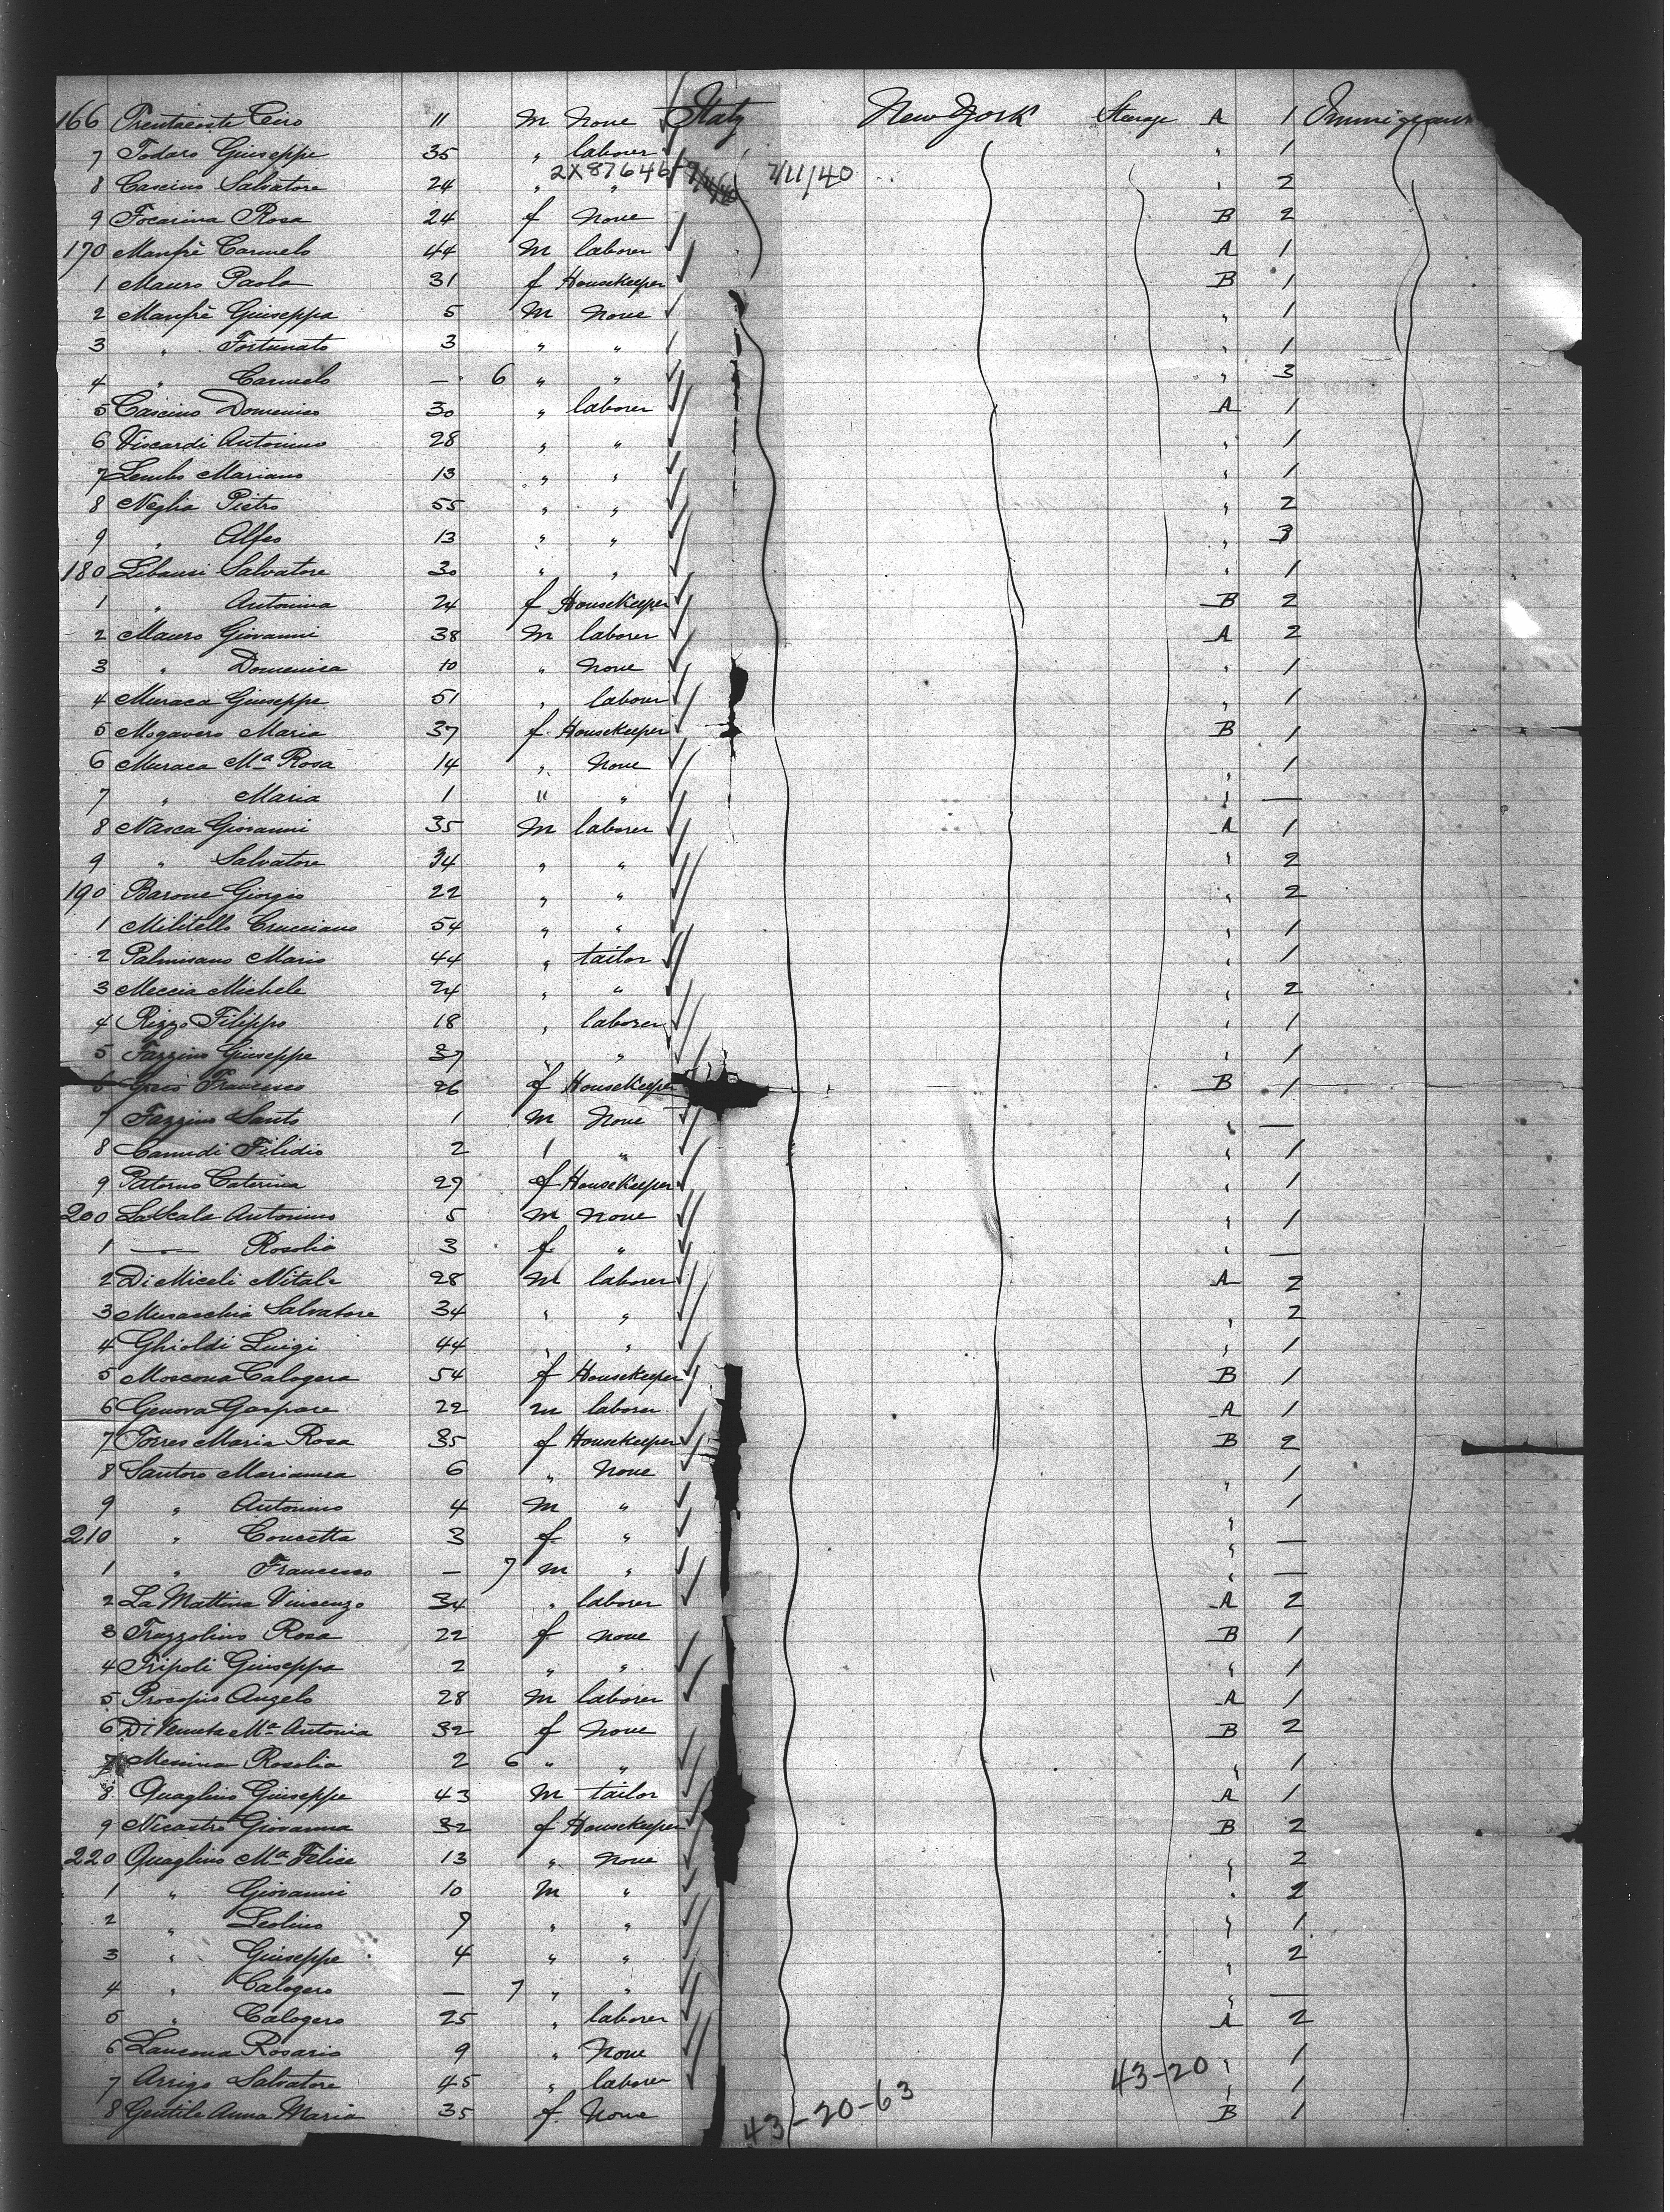 166 Trentacoste Ciro 11 M None Italy New York Steerage A 1 Immigrant
7 Todaro Giuseppe 35 " laborer " 1
2X87646 7/11/40 7/11/40
8 Cascino Salvatore 24 " " " 2
9 Focarina Rosa 24 f None B 2
170 Manfrè Carmelo 44 M laborer A 1
1 Mauro Paola 31 f Housekeeper B 1
2 Manfrè Giuseppa 5 M None " 1
3 " Fortunato 3 " " " 1
4 " Carmelo — 6 " " " 3
5 Cascino Domenico 30 " laborer A 1
6 Viscardi Antonino 28 " " " 1
7 Lembo Mariano 13 " " " 1
8 Neglia Pietro 55 " " " 2
9 " Alfeo 13 " " " 3
180 Libausi Salvatore 30 " " " 1
1 " Antonina 24 f Housekeeper B 2
2 Mauro Giovanni 38 M laborer A 2
3 " Domenica 10 " None " 1
4 Muraca Giuseppe 51 " laborer " 1
5 Mogavero Maria 37 f Housekeeper B 1
6 Muraca Ma Rosa 14 " None " 1
7 " Maria 1 " " " —
8 Nasca Giovanni 35 M laborer A 1
9 " Salvatore 34 " " " 2
190 Barone Giorgio 22 " " " 2
1 Militello Crucciano 54 " " " 1
2 Palmisano Mario 44 " tailor " 1
3 Meccia Michele 24 " " " 2
4 Rizzo Filippo 18 " laborer " 1
5 Fazzino Giuseppe 37 " " " 1
6 Francesco 26 f Housekeeper B 1
7 Fazzino Santo 1 M None " —
8 Cannidi Filidio 2 " " " 1
9 Paterno Caterina 29 f Housekeeper " 1
200 La Scala Antonino 5 M None " 1
1 — Rosolia 3 f " " —
2 Di Miceli Nitale 28 M laborer A 2
3 Musacchia Salvatore 34 " " " 2
4 Ghioldi Luigi 44 " " " 1
5 Moscona Calogera 54 f Housekeeper B 1
6 Genova Gaspare 22 m laborer A 1
7 Torres Maria Rosa 35 f Housekeeper B 2
8 Santoro Marianna 6 " None " 1
9 " Antonino 4 M " " 1
210 " Concetta 3 f " " —
1 " Francesco — 7 m " " —
2 La Mattina Vincenzo 34 " laborer A 2
3 Frazzolino Rosa 22 f none B 1
4 Tripoli Giuseppa 2 " " " 1
5 Procopio Angelo 28 M laborer A 1
6 Di Ma Antonia 32 f None B 2
7 Messina Rosolia 2 6 " " " 1
8 Quaglino Giuseppe 43 M tailor A 1
9 Nicastro Giovanna 32 f Housekeeper B 2
220 Quaglino Ma Felice 13 " None " 2
1 " Giovanni 10 M " " 2
2 " Leolino 9 " " " 1
3 " Giuseppe 4 " " " 2
4 " Calogero — 7 " " " —
5 " Calogero 25 " laborer A 2
6 Lancona Rosario 9 " None " 1
7 Arrigo Salvatore 45 " laborer 43-20 " 1
8 Gentile Anna Maria 35 f None B 1
43-20-63